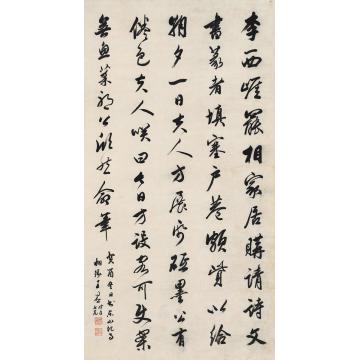 李西涯罷相家居購請詩文
書篆者填塞戶巷頗資以給
朝夕一日夫人方展紙硯墨公有
倦色夫人咲曰今日方設客可使案
無魚菜耶公欣然命筆
癸酉冬日書